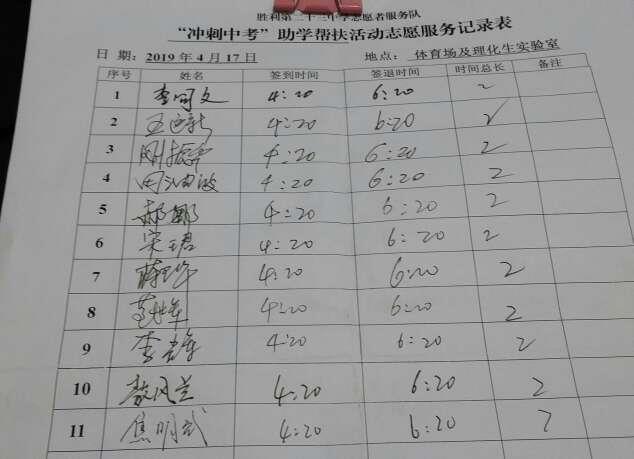 胜利第二十三中学志愿者服务队
“冲刺中考”助学帮扶活动志愿服务记录表
日 期：2019年4月17日 地点：体育场及理化生实验室
序号 姓名 签到时间 签退时间 时间总长 备注
1 李同文 4:20 6:20 2
2 4:20 6:20 2
3 4:20 6:20 2
4 4:20 6:20 2
5 郝娜 4:20 6:20 2
6 宋珺 4:20 6:20 2
7 4:20 6:20 2
8 4:20 6:20 2
9 李 4:20 6:20 2
10 4:20 6:20 2
11 焦明武 4:20 6:20 2